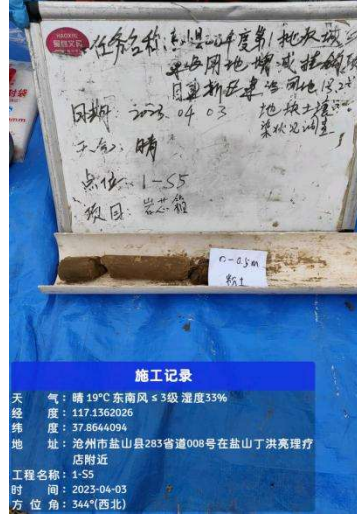 任务名称:盐山县2022年度第1批次城乡
建设用地增减挂钩项
目建新区建设用地13-2#
日期: 2023.04.03 地块土壤污
染状况调查
天气: 晴
点位: 1-S5
项目: 岩芯箱
0-0.5m
粉土
施工记录
天 气:晴 19℃ 东南风 ≤ 3级 湿度33%
经 度:117.1362026
纬 度:37.8644094
地 址:沧州市盐山县283省道008号在盐山丁洪亮理疗
店附近
工程名称:1-S5
时 间:2023-04-03
方 位 角:344°(西北)